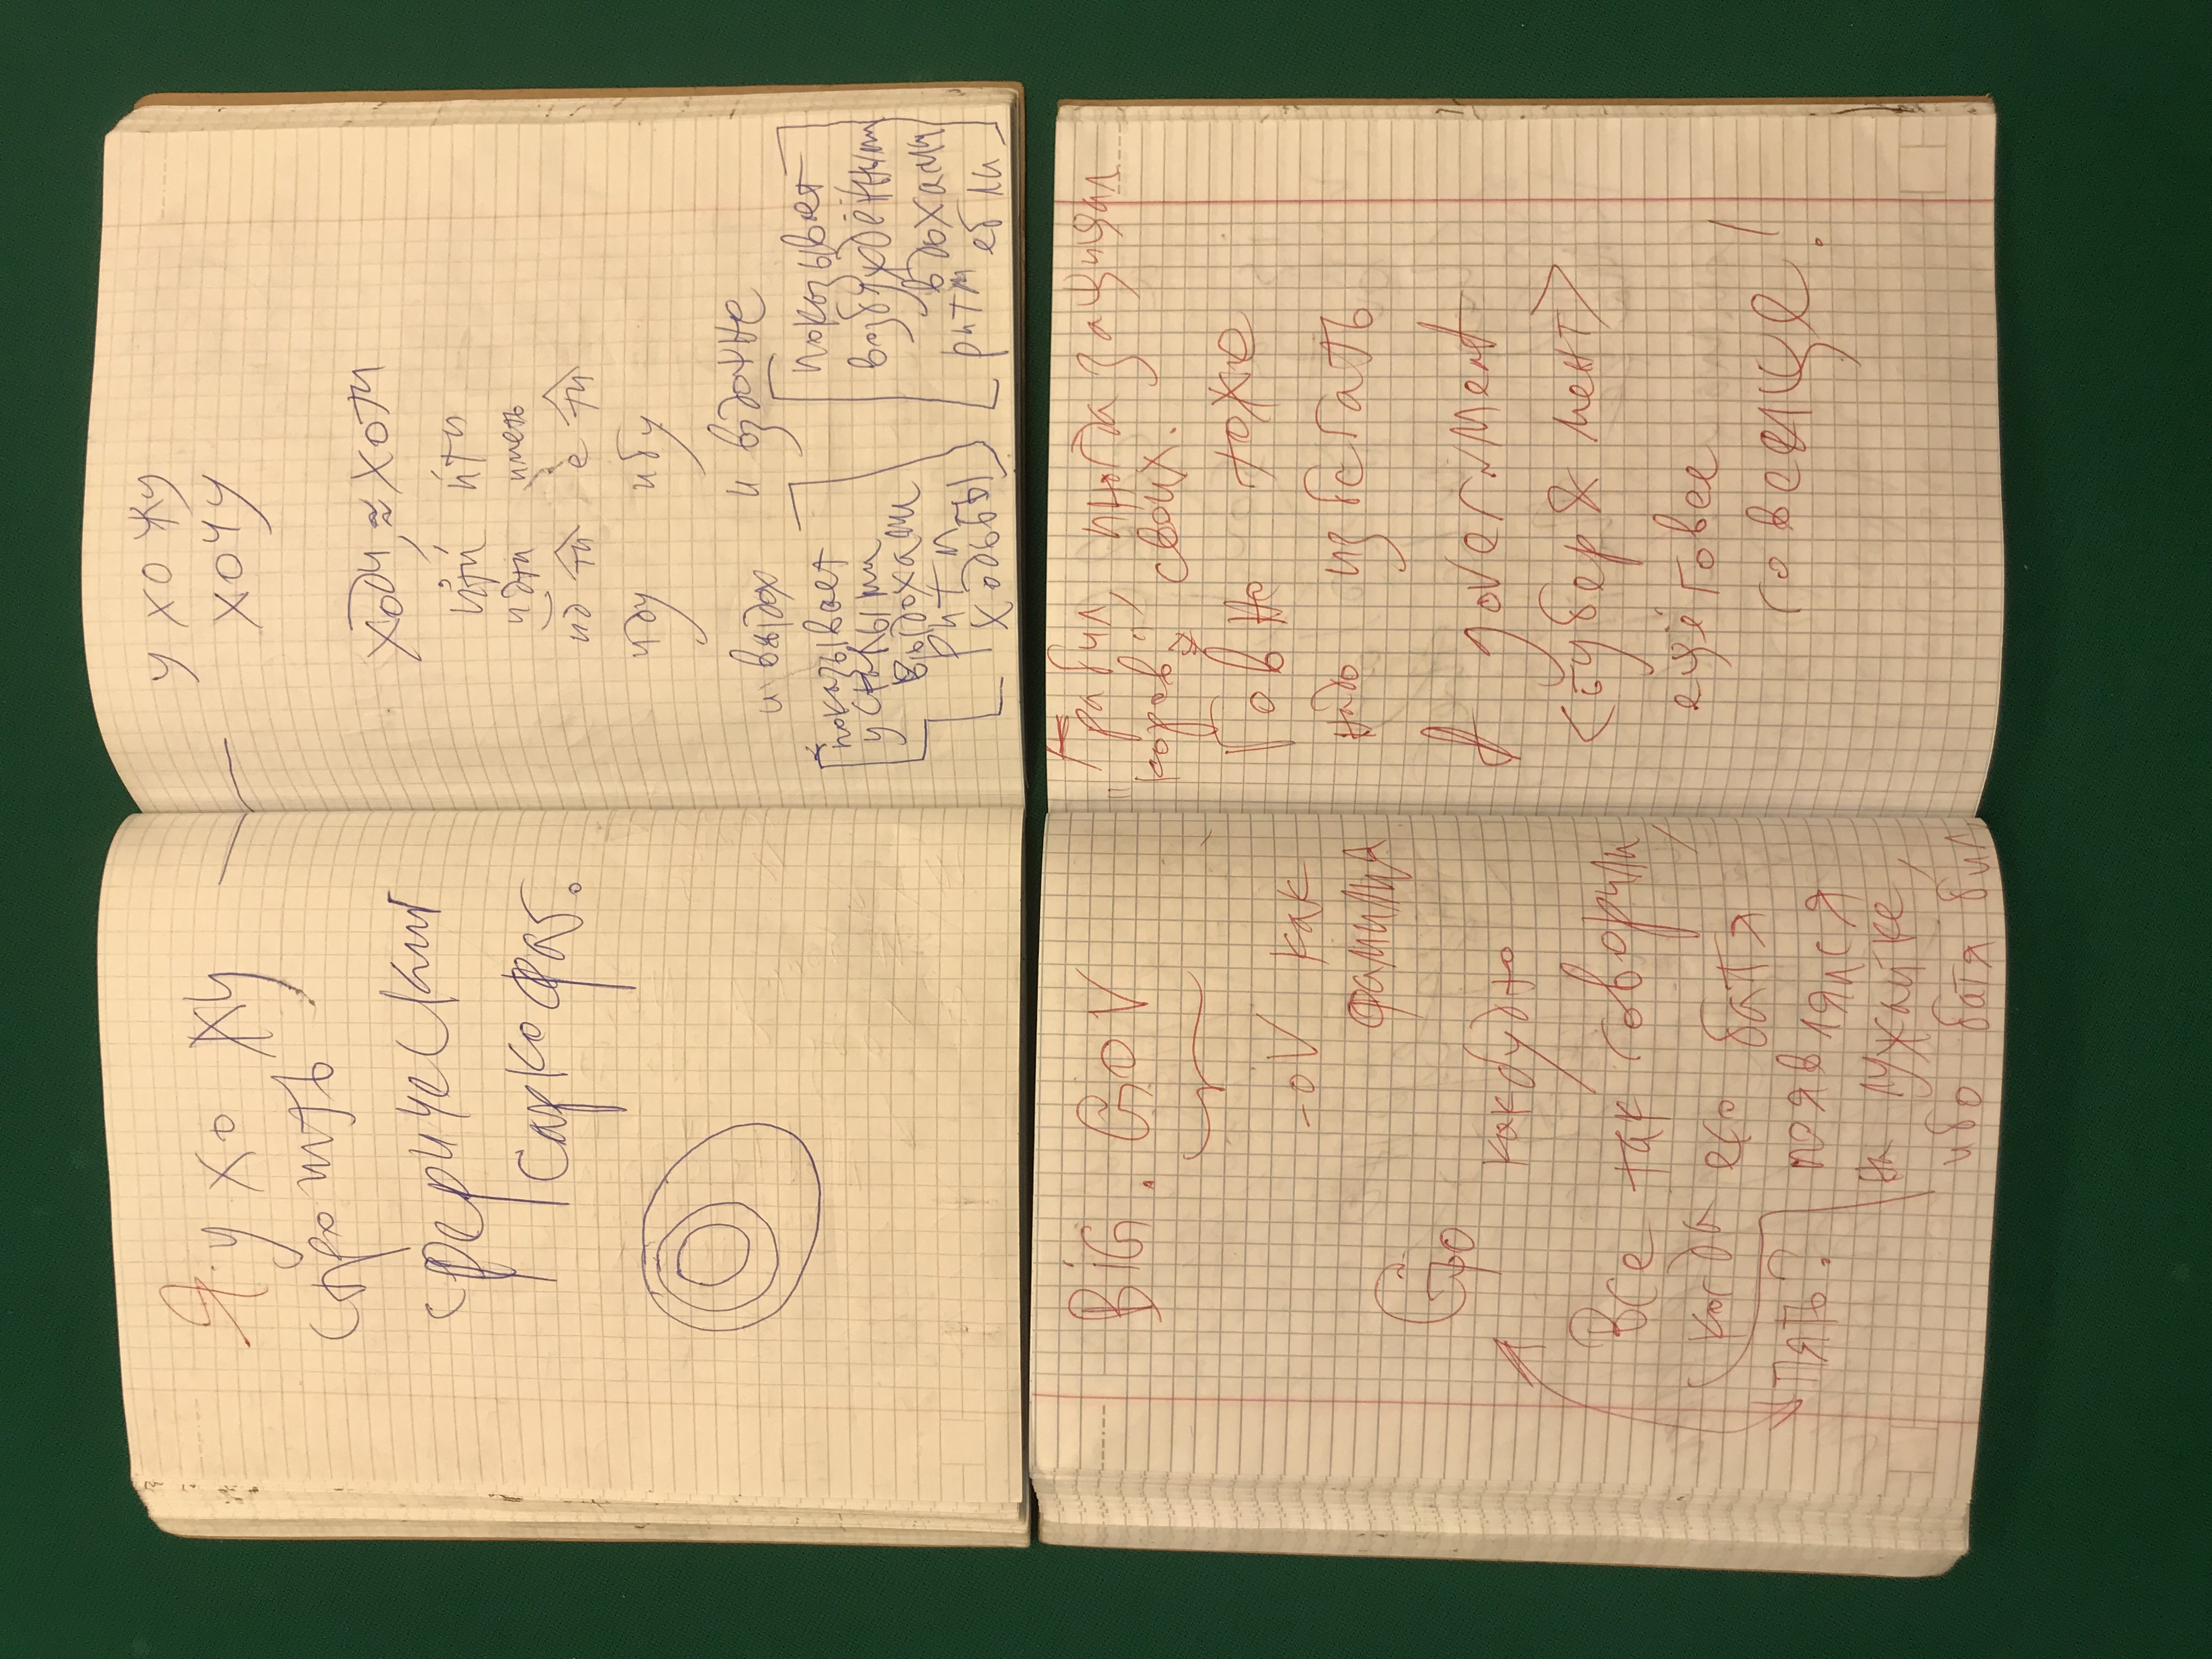 Я ухо жу
строить
сферический
саркофаг.
ухо жу
хочу
ходи, ≈ хоти
и́ти́ и́ти
идти иметь
ид ти е ти
иду ибу
и выдох и вздохне
показывает
усталыми
выдохами
ритм
ходьбы
показывает
возбуждёнными
вдохами
ритм ебли
BiG. GOV
-oV как
фамилия
как будто
Все так говорили,
когда его батя
пять?
появлялся
на лужайке,
ибо батя бил,
грабил, иногда защищал
"коров" своих.
Говно тоже
надо избегать
government
<губер & мент>
ещё говее
говеище!